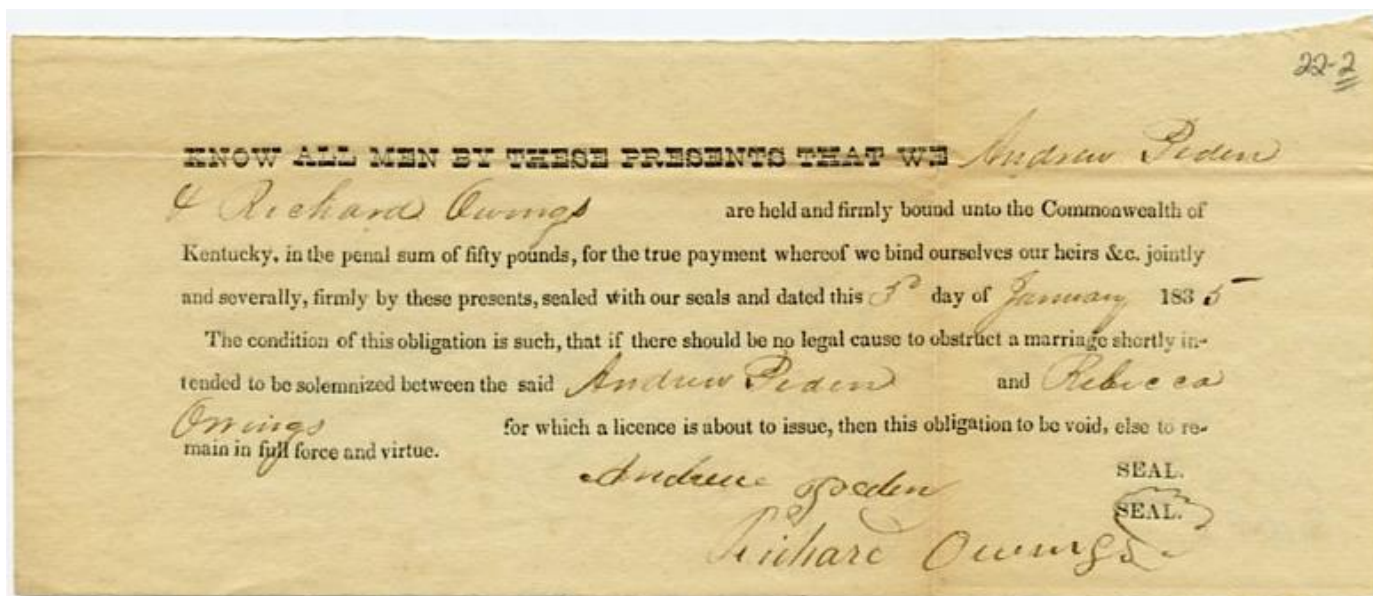 22-2
KNOW ALL MEN BY THESE PRESENTS THAT WE Andrew Peden
& Richard Owings are held and firmly bound unto the Commonwealth of
Kentucky, in the penal sum of fifty pounds, for the true payment whereof we bind ourselves our heirs &c. jointly
and severally, firmly by these presents, sealed with our seals and dated this day of January 1835
The condition of this obligation is such, that if there should be no legal cause to obstruct a marriage shortly in-
tended to be solemnized between the said Andrew Peden and Rebecca
Owings for which a licence is about to issue, then this obligation to be void, else to re-
main in full force and virtue.
Andrew Peden SEAL.
SEAL.
Richard Owings